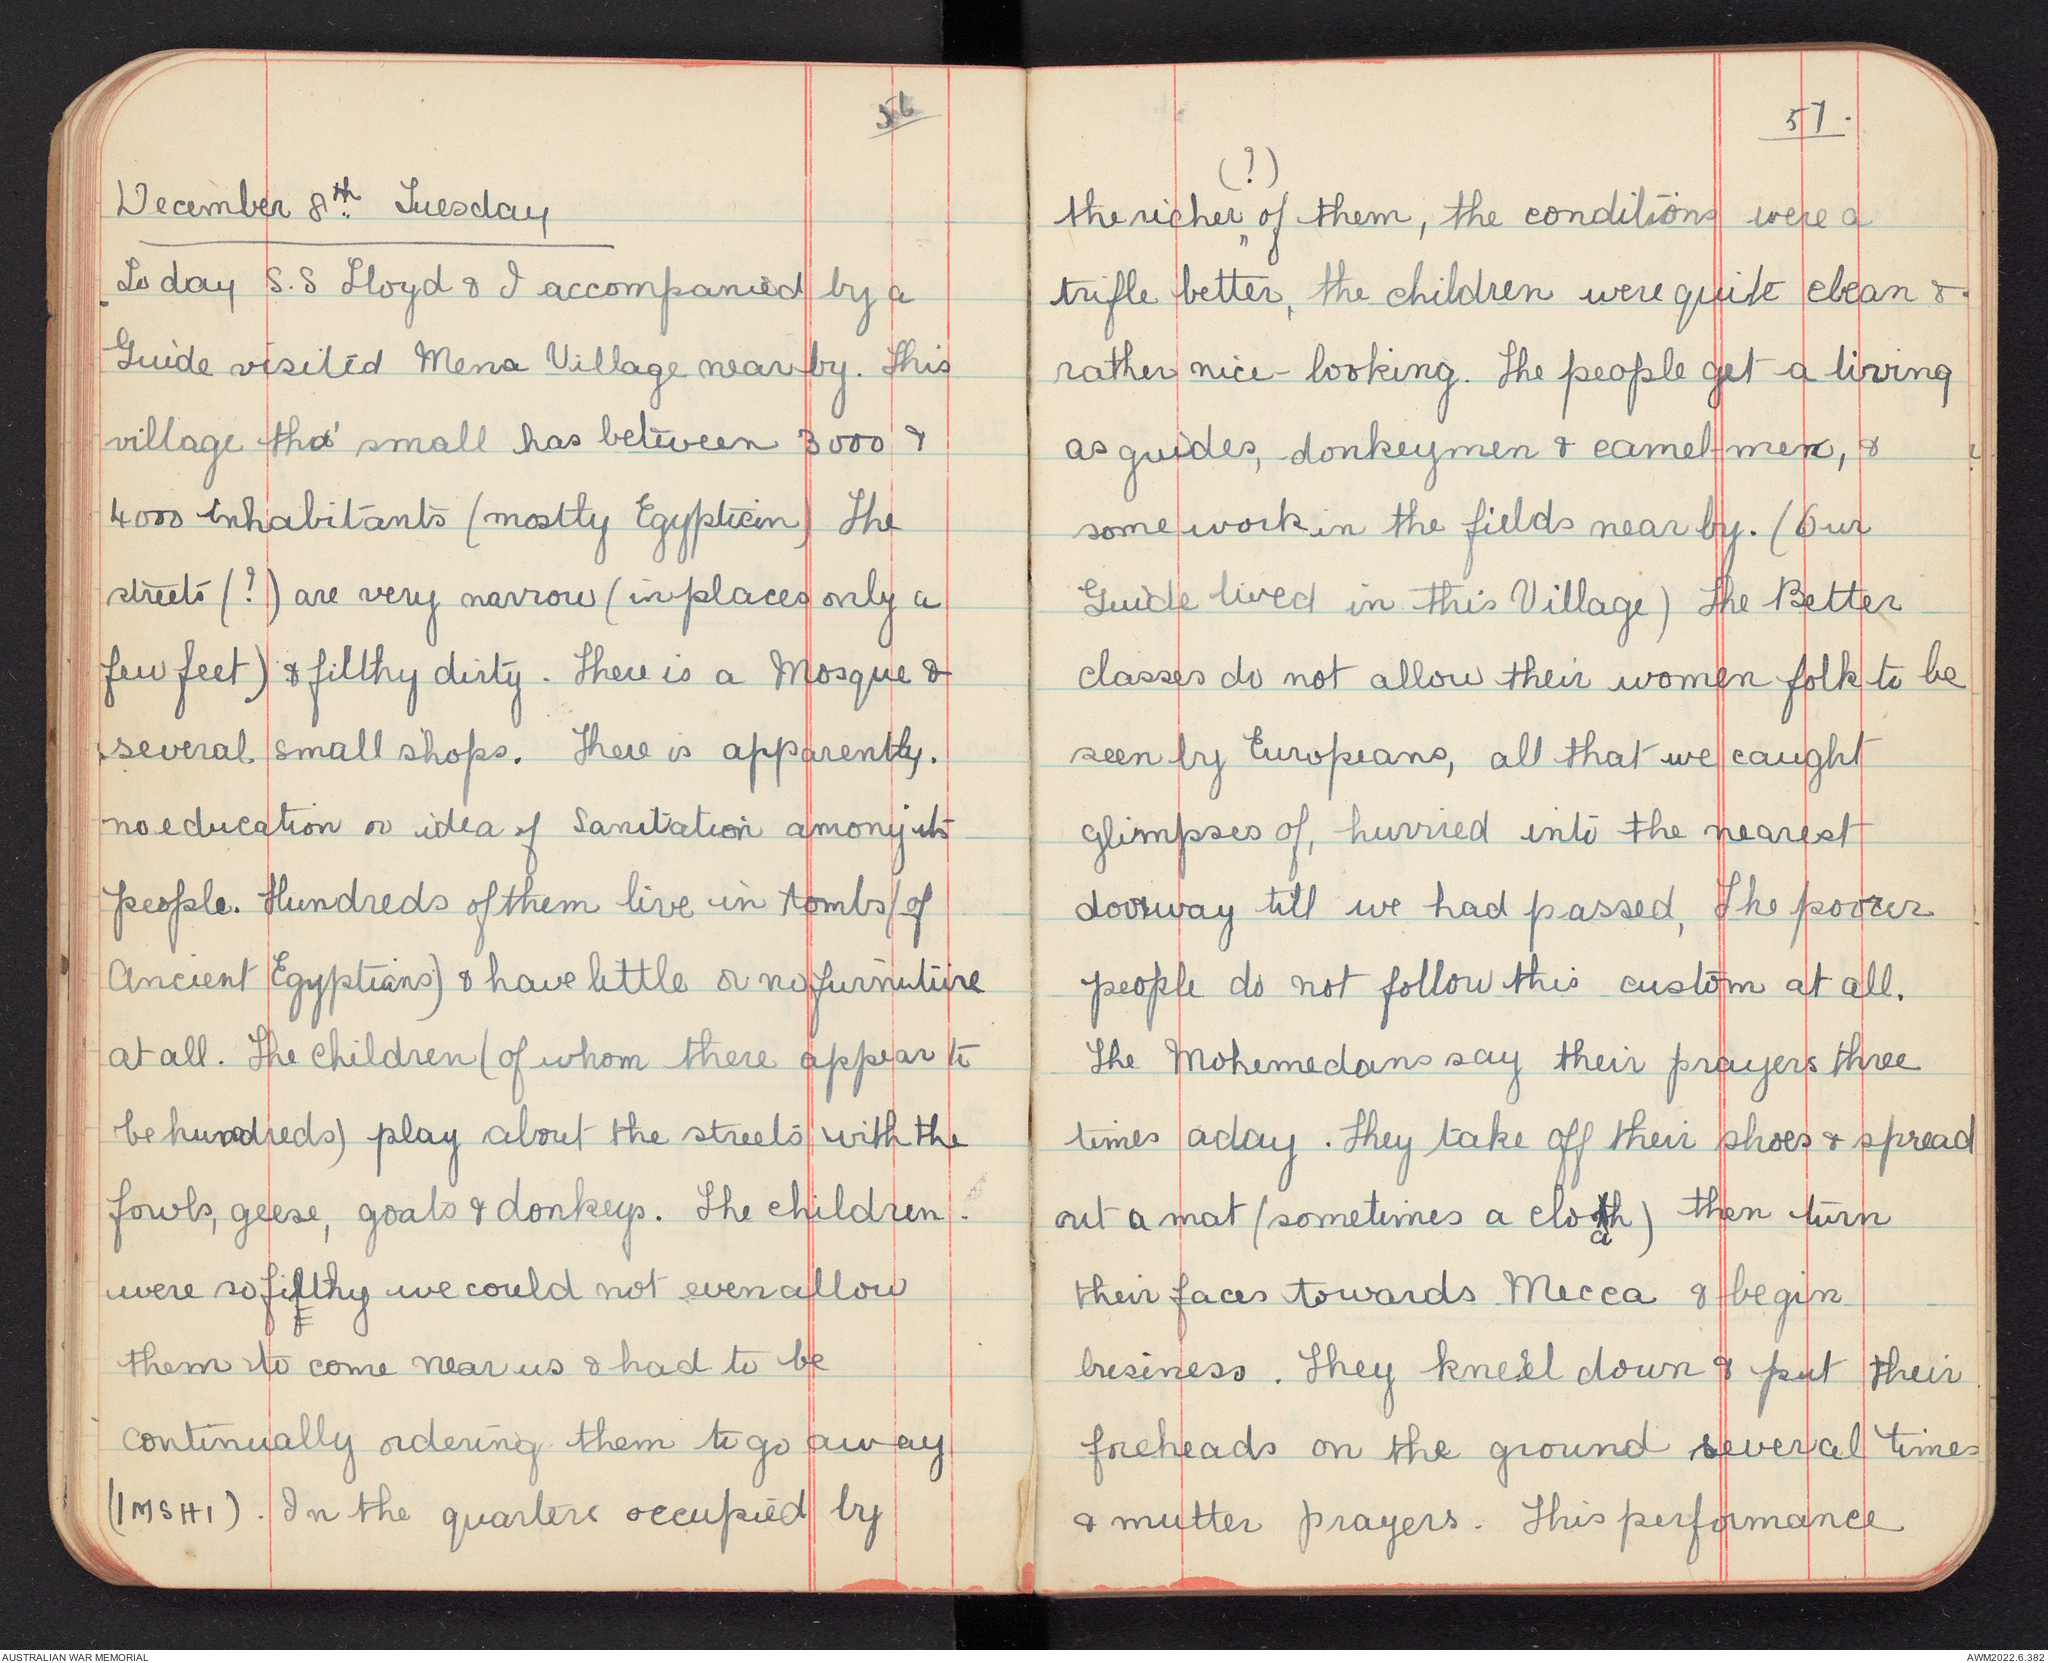 56
December 8th. Tuesday
To day S.S Lloyd & I accompanied by a
Guide visited Mena Village near by. This
village tho' small has between 3000 &
4000 inhabitants (mostly Egyptian) The
streets (?) are very narrow (in places only a
few feet) & filthy dirty. There is a Mosque &
several small shops. There is apparently.
no education or idea of Sanitation among its
people. Hundreds of them live in tombs (of
Ancient Egyptians) & have little or no furniture
at all. The children (of whom there appear to
be hundreds) play about the streets with the
fowls, geese, goats & donkeys. The children.
were so filthy we could not even allow
them to come near us & had to be
continually ordering them to go away
(IMSHI). In the quarters occupied by
57.
(?)
the richer of them, the conditions were a
trifle better, the children were quite clean &
rather nice-looking. The people get a living
as guides, donkeymen & camel-men, &
some work in the fields near by. (Our
Guide lived in this Village) The Better
classes do not allow their women folk to be
seen by Europeans, all that we caught
glimpses of, hurried into the nearest
doorway till we had passed, The poorer
people do not follow this custom at all.
The Mohemedans say their prayers three
times a day. They take off their shoes & spread
out a mat (sometimes a cloth) then turn
their faces towards Mecca & begin
business. They kneel down & put their
foreheads on the ground several times
& mutter prayers. This performance
AUSTRALIAN WAR MEMORIAL
AWM2022.6.382